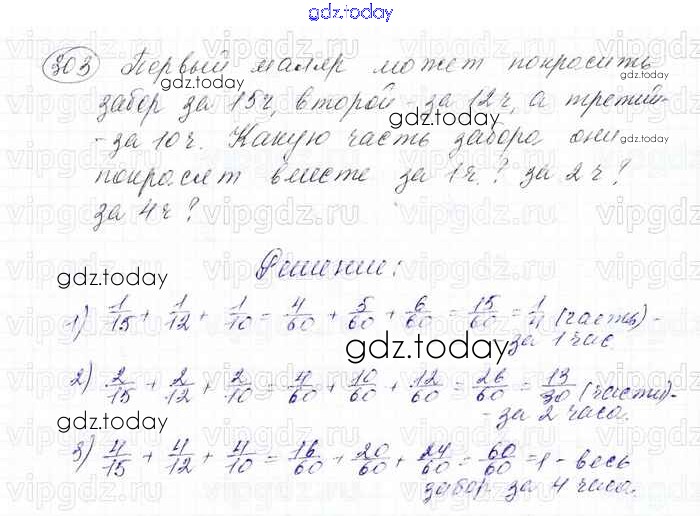 gdz.today
303 Первый маляр может покрасить
забор за 15ч, второй - за 12ч, а третий -
- за 10ч. Какую часть забора они
покрасят вместе за 1ч.? за 2ч?
за 4ч?
Решение:
1) 1/15 + 1/12 + 1/10 = 4/60 + 5/60 + 6/60 = 15/60 = 1/4 (часть) -
за 1 час.
2) 2/15 + 2/12 + 2/10 = 4/60 + 10/60 + 12/60 = 26/60 = 13/30 (части) -
- за 2 часа.
3) 4/15 + 4/12 + 4/10 = 16/60 + 20/60 + 24/60 = 60/60 = 1 - весь
забор за 4 часа.